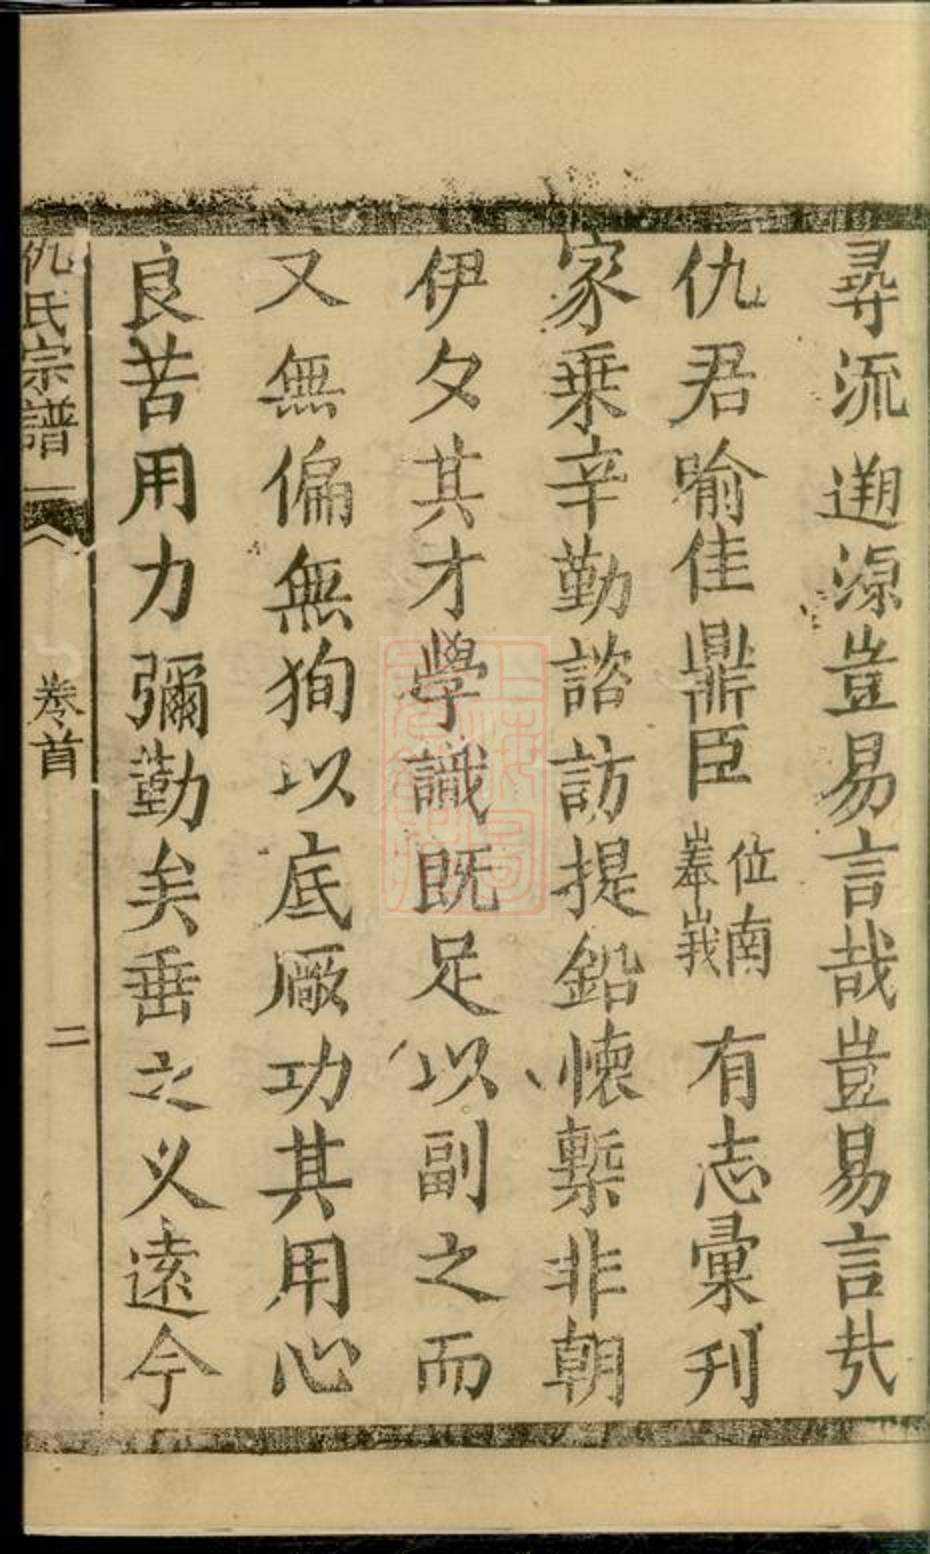 尋流遡源豈易言哉豈易言哉
仇君喻佳鼎臣位南峯峩有志彙刊
家乗辛勤諮訪提鉛懐槧非朝
伊夕其才學識既足以副之而
又無偏無狥以底厥功其用心
良苦用力彌勤矣垂之乂遠今
仇氏宗譜一
卷首
二